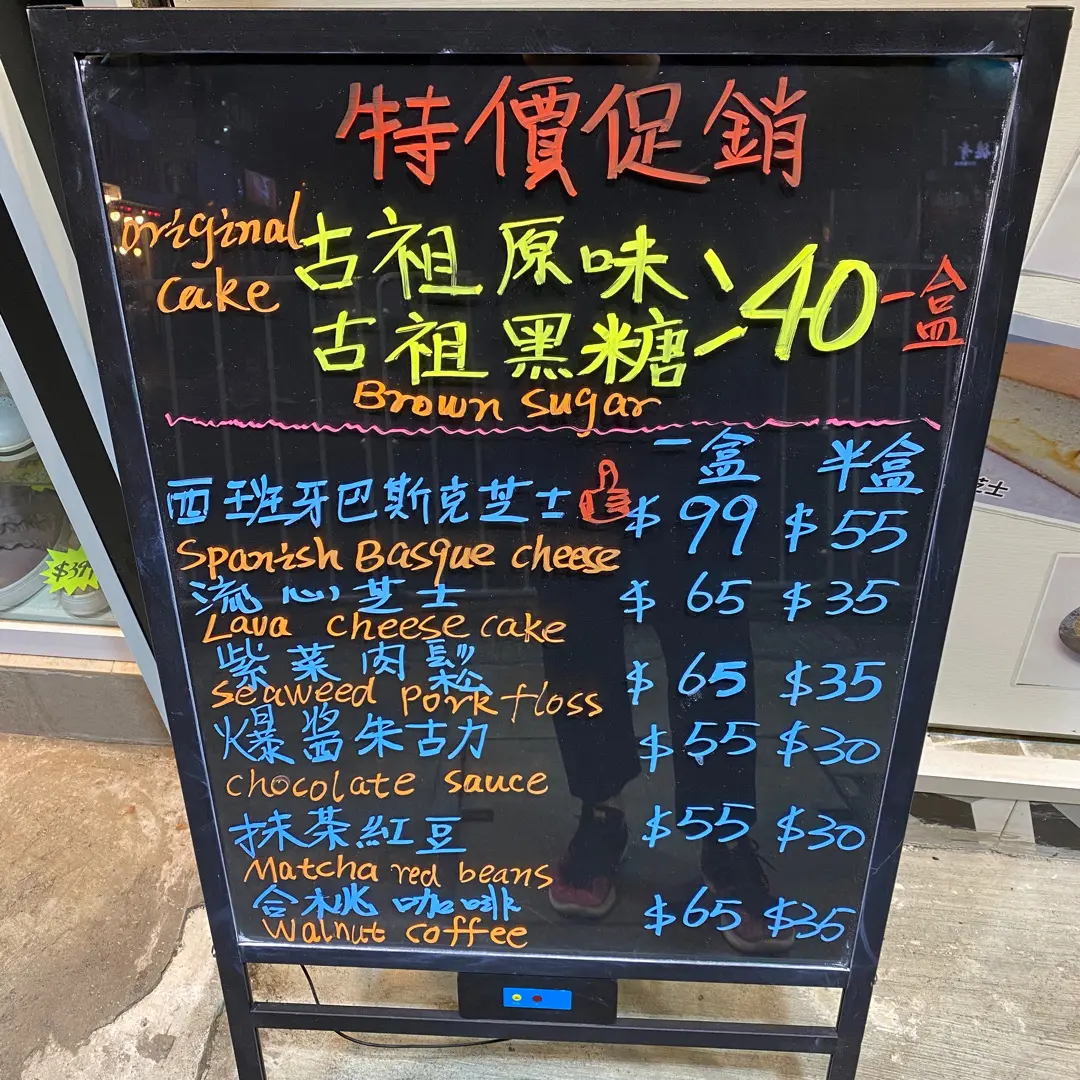 特價促銷
original
cake
古祖原味
古祖黑糖
40 一盒
Brown sugar
一盒 半盒
西班牙巴斯克芝士 $99 $55
Spanish Basque cheese
流心芝士 $65 $35
Lava cheese cake
紫菜肉鬆 $65 $35
seaweed pork floss
爆醬朱古力 $55 $30
chocolate sauce
抹茶紅豆 $55 $30
Matcha red beans
合桃咖啡 $65 $35
Walnut coffee